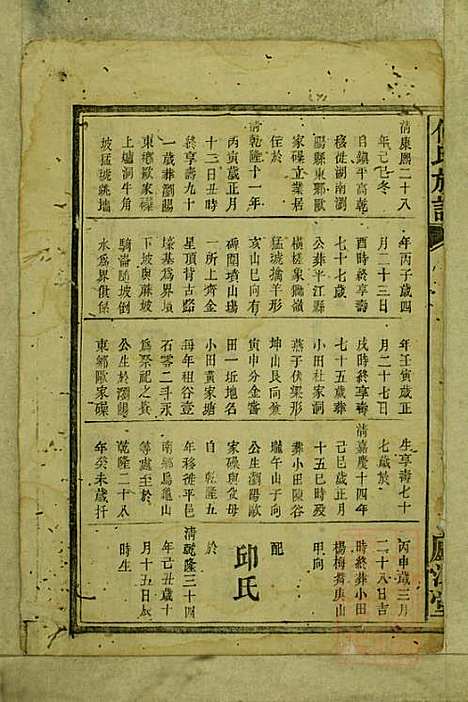 清康熙二十八
年己巳冬
自鎮平高乾
移徙湖南瀏
陽縣東鄉歐
家磜立業居
住於
清乾隆十一年
丙寅歲正月
十三日丑時
終享壽九十
一歲葬瀏陽
東鄉歐家磜
上爐洞牛角
坡猛虎跳墻
年丙子歲四
月二十三日
酉時終享壽
七十七歲
公葬平江縣
橫槎象嶺
猛城擒羊形
亥山巳向有
碑閣墳山塲
一所上齊金
星頂背古豁
壕基爲界墳
下坡與蔴坡
騎崙隨坡倒
水爲界俱係
年壬寅歲正
月二十七日
戌時終享壽
七十五歲葬
小田杜家洞
燕子伏梁形
坤山艮向兼
寅申分金嘗
田一坵地名
小田黃家塘
每年租谷壹
石零二斗永
爲祭祀之資
公生於瀏陽
東鄉歐家磜
生享壽七十
七歲於
清嘉慶十四年
己巳歲正月
十五巳時歿
葬小田陳谷
壠午山子向
公生瀏陽歐
家磜與父母
自乾隆五
年移徙平邑
南鄉烏龜山
等處至於
乾隆二十八
年癸未歲扦
丙申歲三月
二十八日吉
時終葬小田
楊梅嘴庚山
甲向
配
邱氏
於
清乾隆三十四
年己丑歲十
月十五日辰
時生
氏族譜
堂